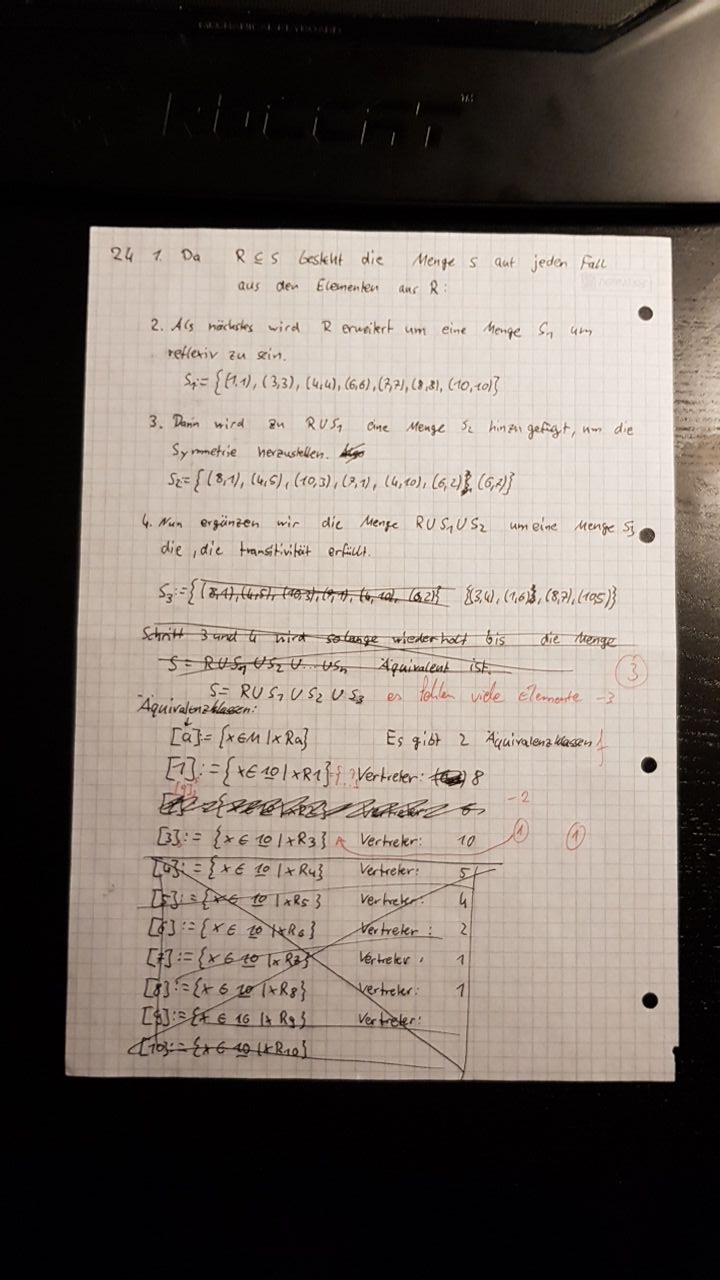 MECHANICAL KEYBOARD
ROCCAT™
24 1. Da R ⊆ S besteht die Menge S auf jeden Fall
aus den Elementen aus R:
2. Als nächstes wird R erweitert um eine Menge S₁ um
reflexiv zu sein.
S₁:= {(1,1), (3,3), (4,4), (6,6), (7,7), (8,8), (10,10)}
3. Dann wird zu R∪S₁ eine Menge S₂ hinzugefügt, um die
Symmetrie herzustellen.
S₂={(8,1), (4,5), (10,3), (7,1), (4,10), (6,2), (6,7)}
4. Nun ergänzen wir die Menge R∪S₁∪S₂ um eine Menge S₃
die, die transitivität erfüllt.
S₃:={(8,1),(4,5),(10,3),(7,1),(4,10),(6,2)} {(3,4), (1,6), (8,7), (10,5)}
Schritt 3 und 4 wird solange wiederholt bis die Menge
S = R∪S₁∪S₂∪...∪Sn Äquivalent ist.
3
S= R∪S₁∪S₂∪S₃ es fehlen viele Elemente -3
Äquivalenzklassen:
[a]:= {x∈M|xRa} Es gibt 2 Äquivalenzklassen
[1]:= {x∈10|xR1} Vertreter: 8
-2
[3]:= {x∈10|xR3} Vertreter: 10 1 1
[4]:= {x∈10|xR4} Vertreter: 5
[5]:= {x∈10|xR5} Vertreter: 4
[6]:= {x∈10|xR6} Vertreter: 2
[7]:= {x∈10|xR7} Vertreter: 1
[8]:= {x∈10|xR8} Vertreter: 1
[9]:= {x∈10|xR9} Vertreter:
[10]:= {x∈10|xR10}